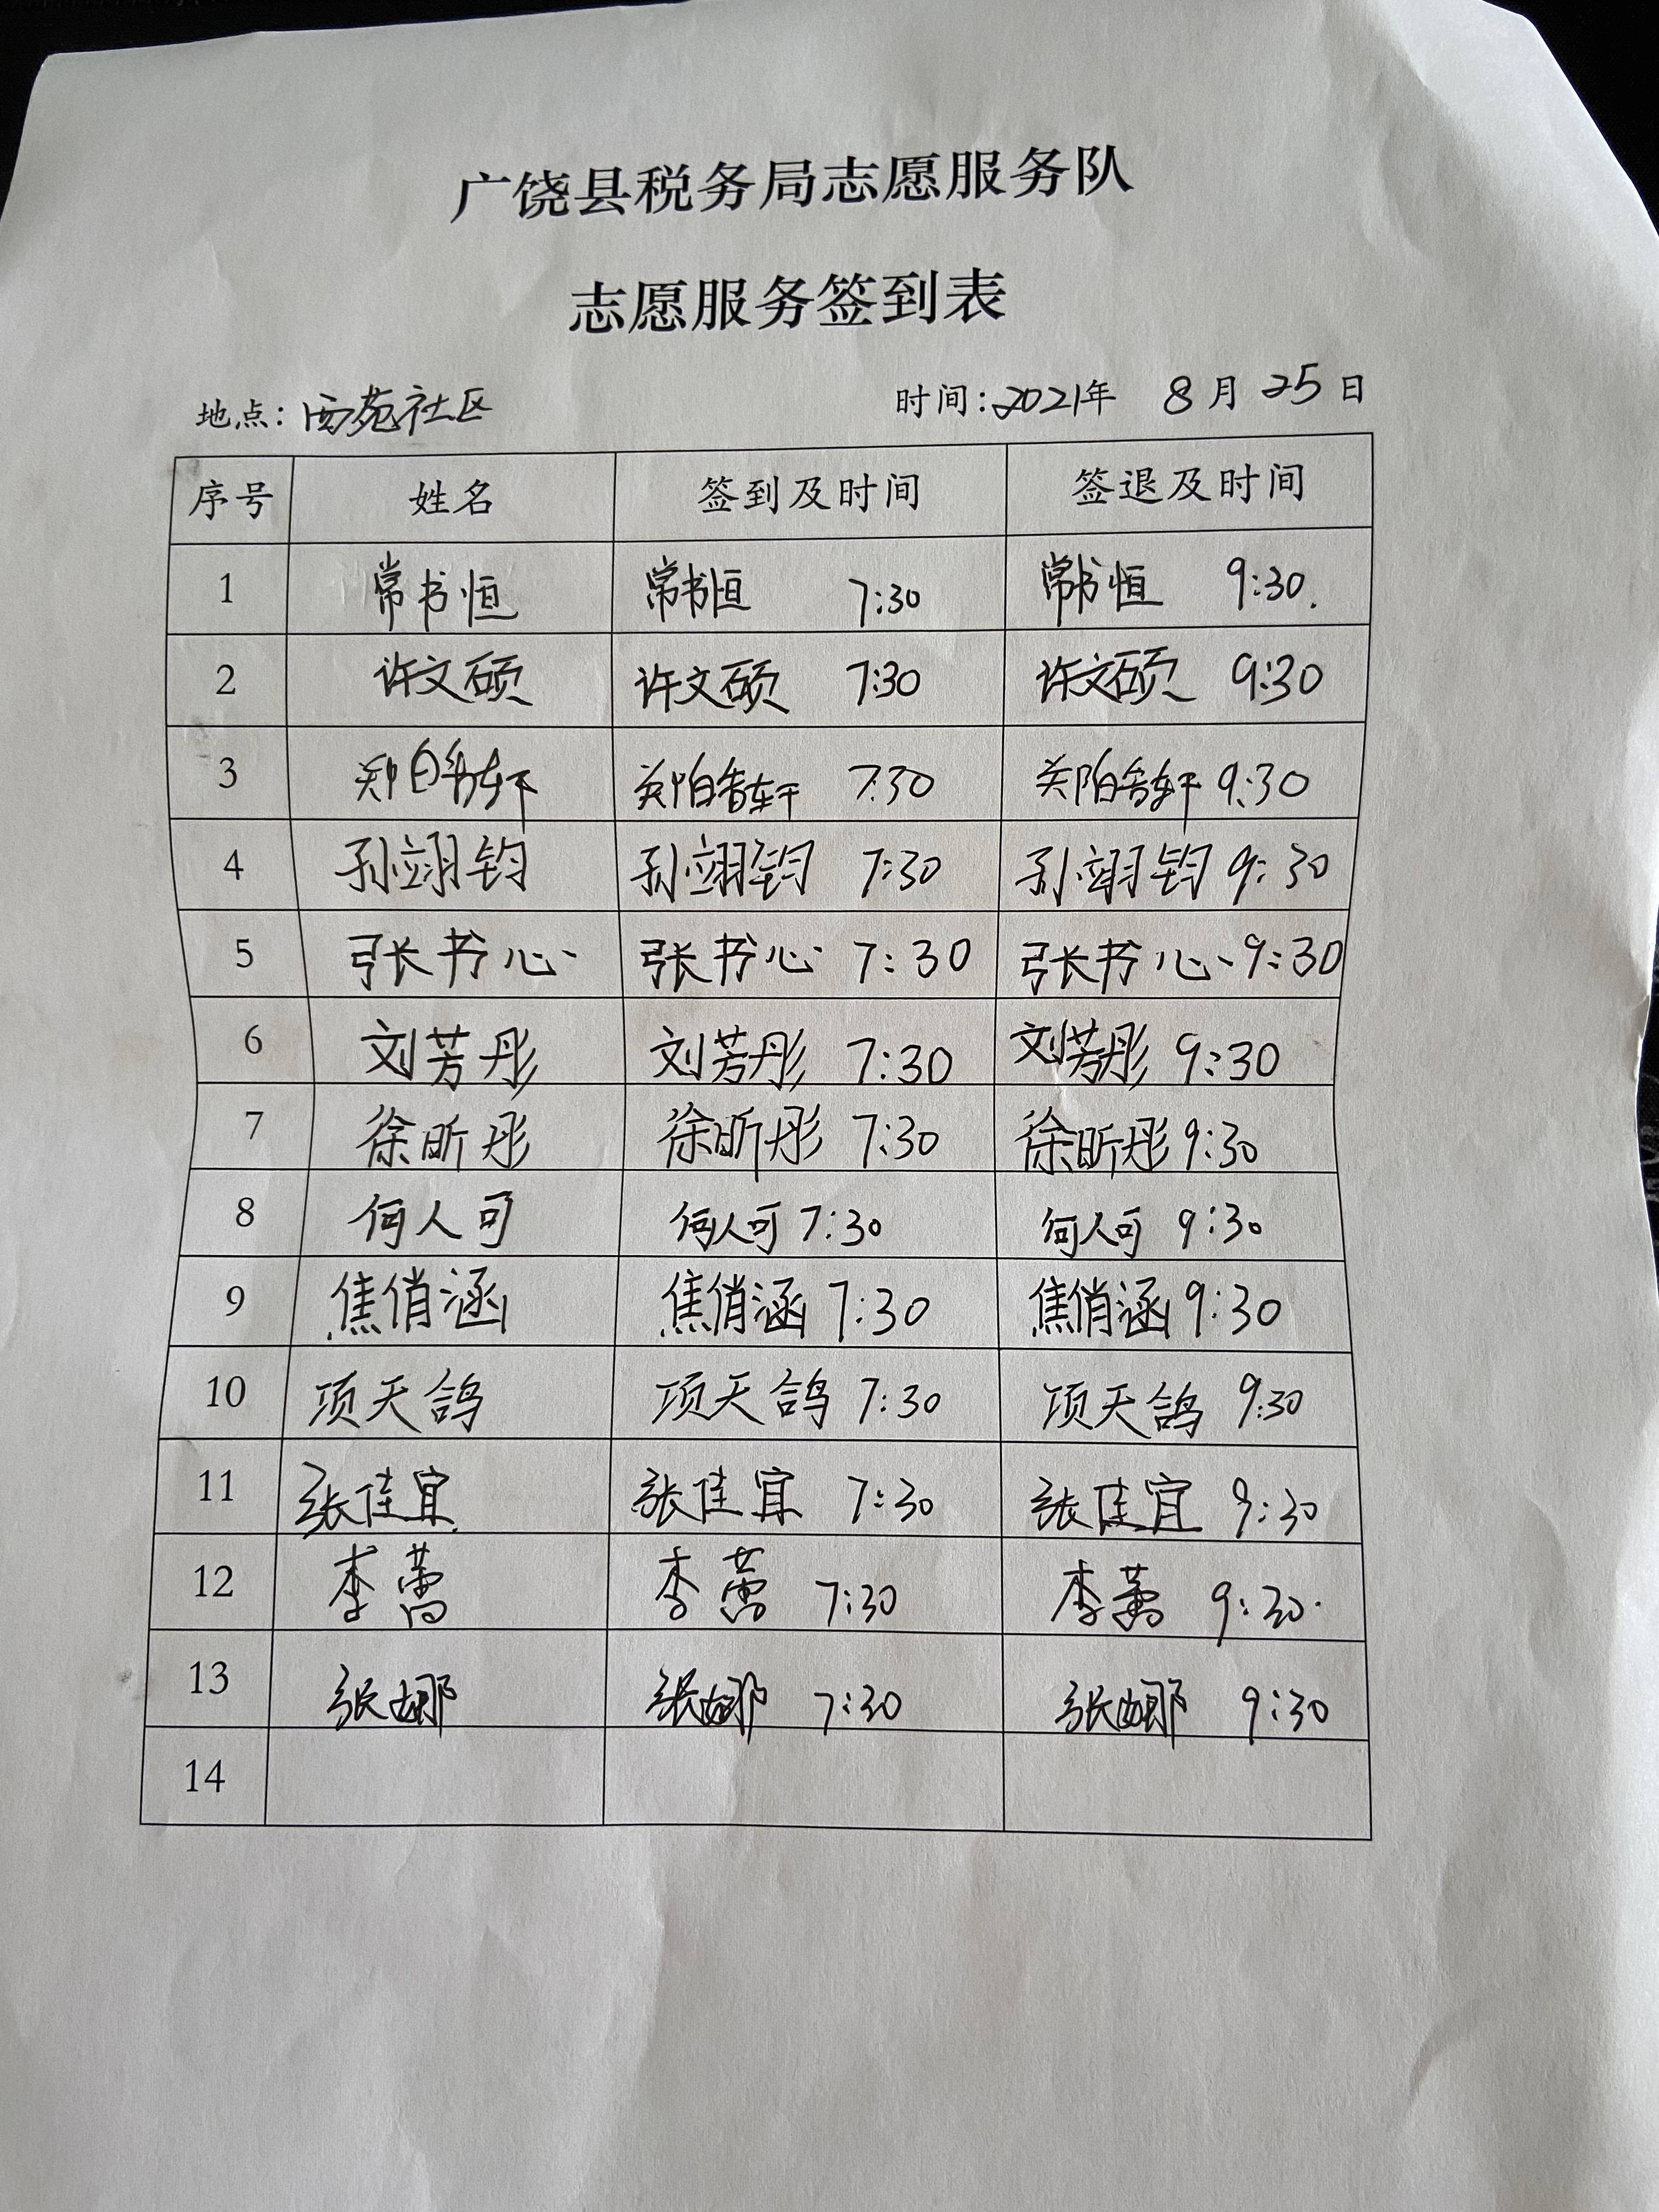 广饶县税务局志愿服务队
志愿服务签到表
地点：西苑社区 时间：2021年 8月25日
序号 姓名 签到及时间 签退及时间
1 常书恒 常书恒 7:30 常书恒 9:30.
2 许文硕 许文硕 7:30 许文硕 9:30
3 7:30 9:30
4 孙翊钧 孙翊钧 7:30 孙翊钧 9:30
5 张书心 张书心 7:30 张书心 9:30
6 刘芳彤 刘芳彤 7:30 刘芳彤 9:30
7 徐昕彤 徐昕彤 7:30 徐昕彤 9:30
8 何人可 何人可 7:30 何人可 9:30
9 焦俏涵 焦俏涵 7:30 焦俏涵 9:30
10 项天鸽 项天鸽 7:30 项天鸽 9:30
11 张佳宜 张佳宜 7:30 张佳宜 9:30
12 李 李 7:30 李 9:30.
13 张娜 张娜 7:30 张娜 9:30
14